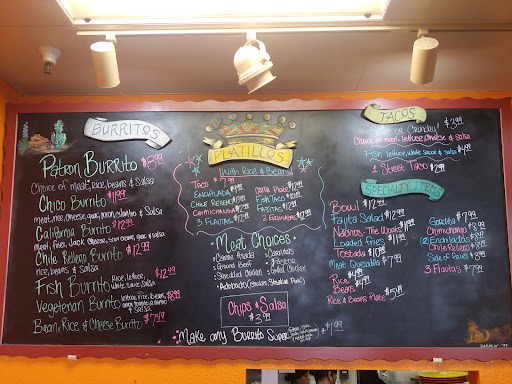 BURRITOS
Patron Burrito $8.99
Choice of meat, rice, beans & Salsa
Chico Burrito $11.99
meat, rice, cheese, guac, onion, cilantro & Salsa
California Burrito $12.99
meat, fries, Jack cheese, sour cream, guac & salsa
Chile Relleno Burrito $12.99
rice, beans & Salsa
Fish Burrito Rice, lettuce, $12.99
white sauce, salsa
Vegetarian Burrito lettuce, rice, beans, $8.99
& salsa
Bean, Rice & Cheese Burrito $7.49
PLATILLOS
With Rice & Beans
Taco $7.99
Enchilada
Chile Relleno
Chimichanga
3 Flautas
Carne Asada
Fish Taco
Fajitas $12.99
2 Enchiladas
Meat Choices:
Carne Asada
Ground Beef
Shredded Chicken
Carnitas
Al Pastor
Grilled Chicken
Adobada
Chips & Salsa
$3.99
Make any Burrito Super $1.99
TACOS
Crunchy! $3.99
Choice of meat, lettuce, cheese & salsa
Fish, lettuce, white sauce & salsa
1 Street Taco $2.99
SPECIALTY ITEMS
Bowl $12.99
Fajita Salad $12.99
Nachos "The Works"
Loaded Fries
Tostada $10.99
Meat Quesadilla $7.99
Rice
Beans
Rice & Beans Plate $5.49
Gordita $7.99
Chimichanga
2 Enchiladas
Chile Relleno
Side of Fries
3 Flautas $7.99